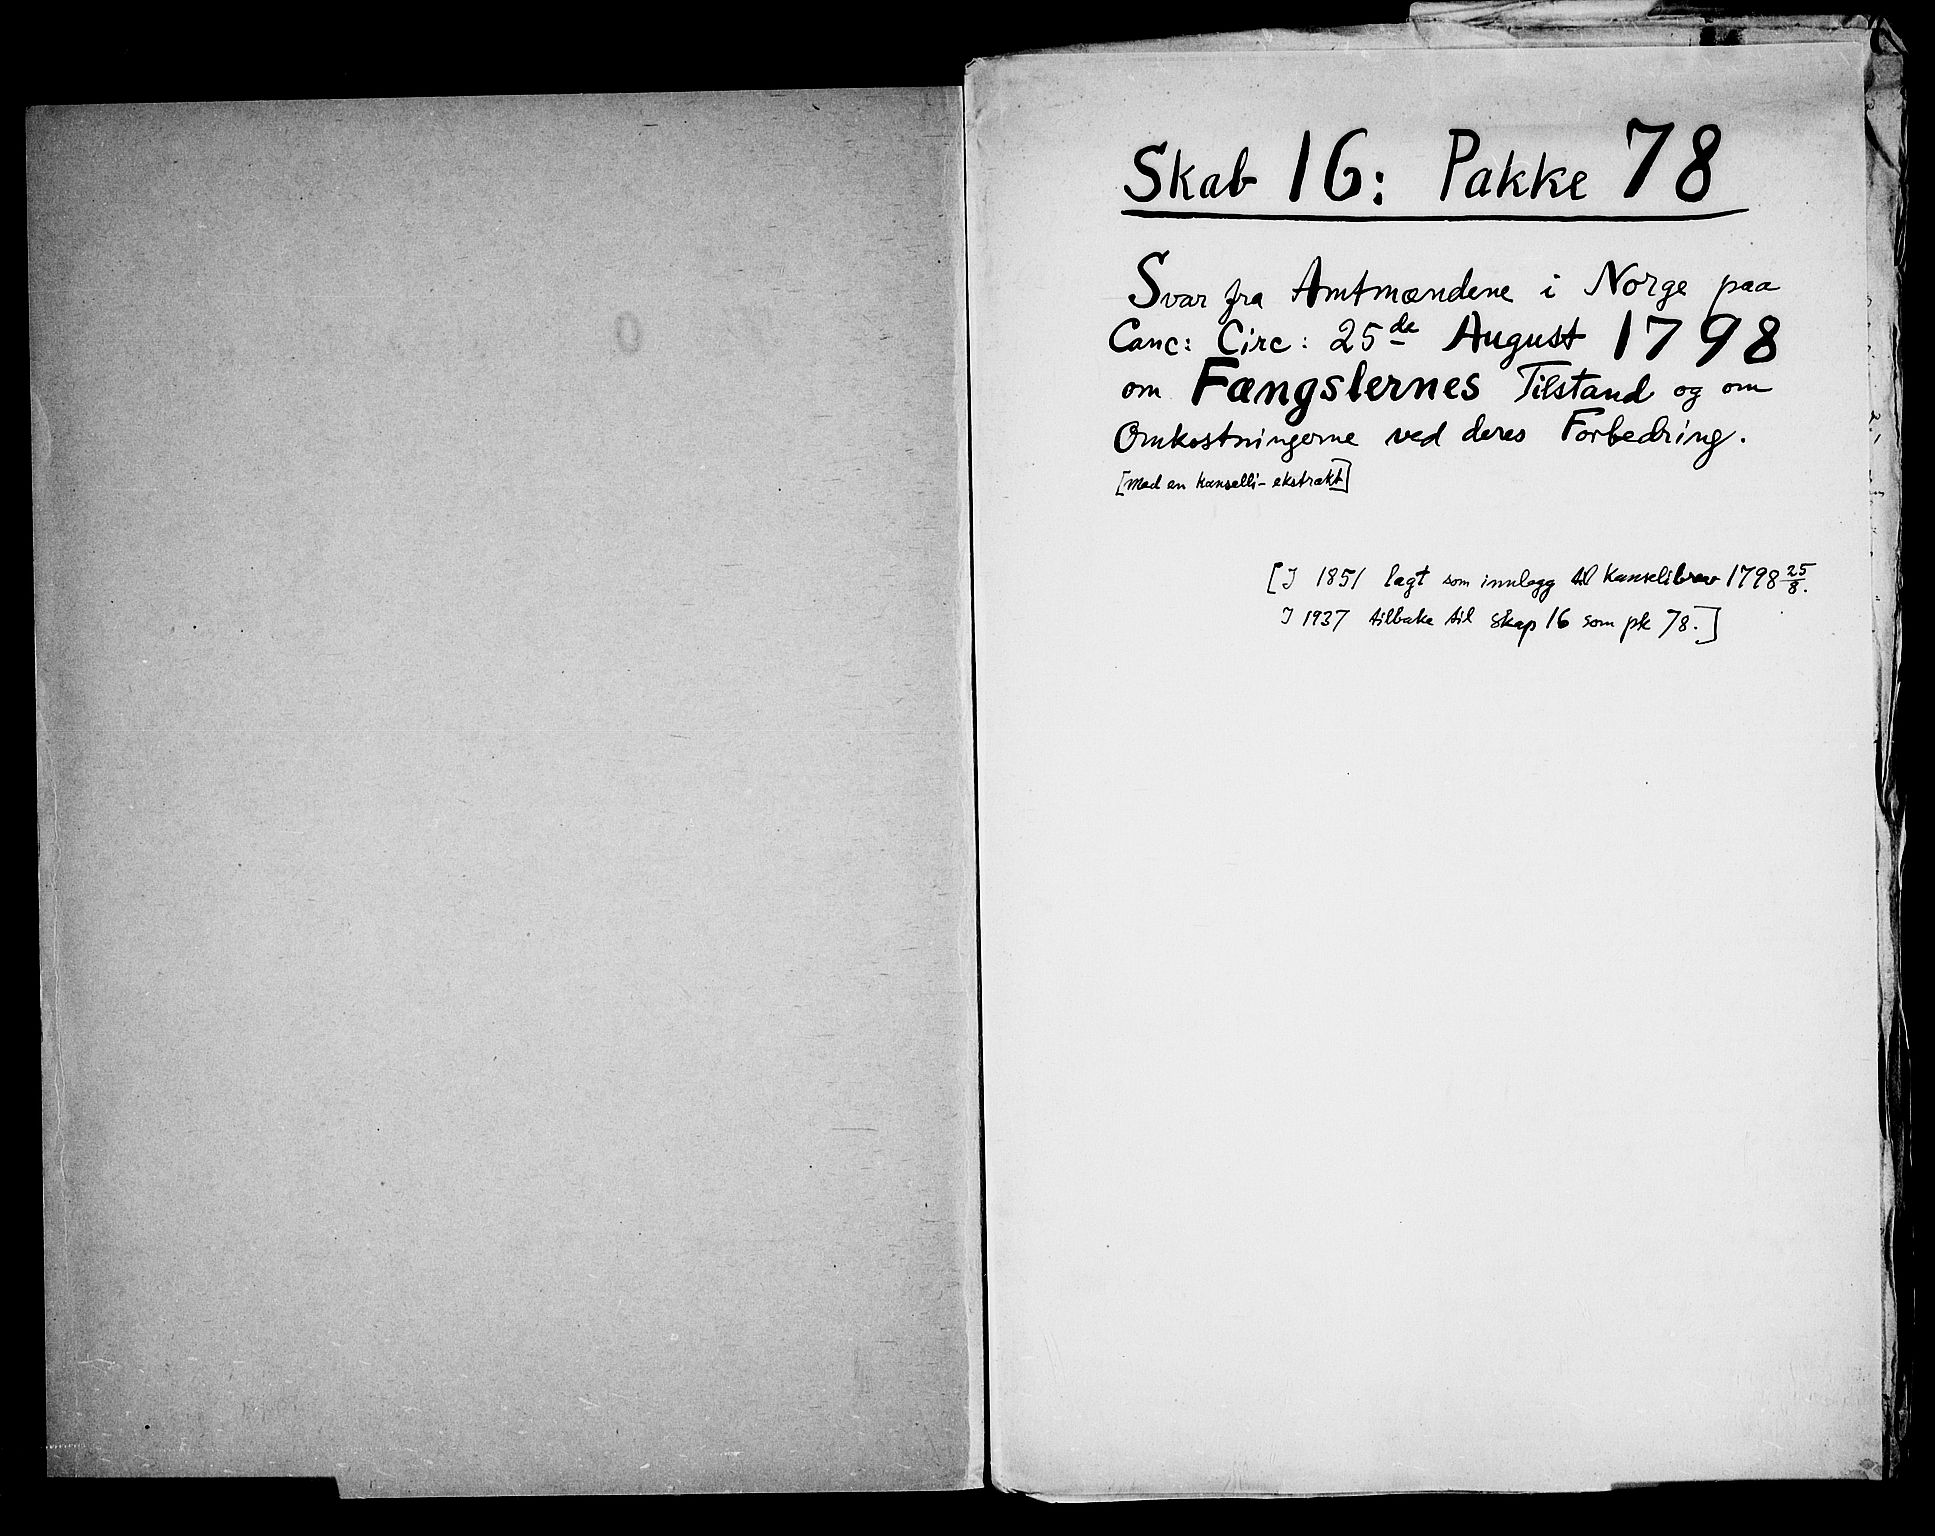 Skab 16: Pakke 78
Svar fra Amtmændene i Norge paa
Canc: Circ: 25de August 1798
om Fængslernes Tilstand og om
Omkostningerne ved deres Forbedring.
[Med en kanselli-ekstrakt]
[I 1851 lagt som innlegg til kansellibrev 1798 25/8.
I 1937 tilbake til skap 16 som pk 78.]